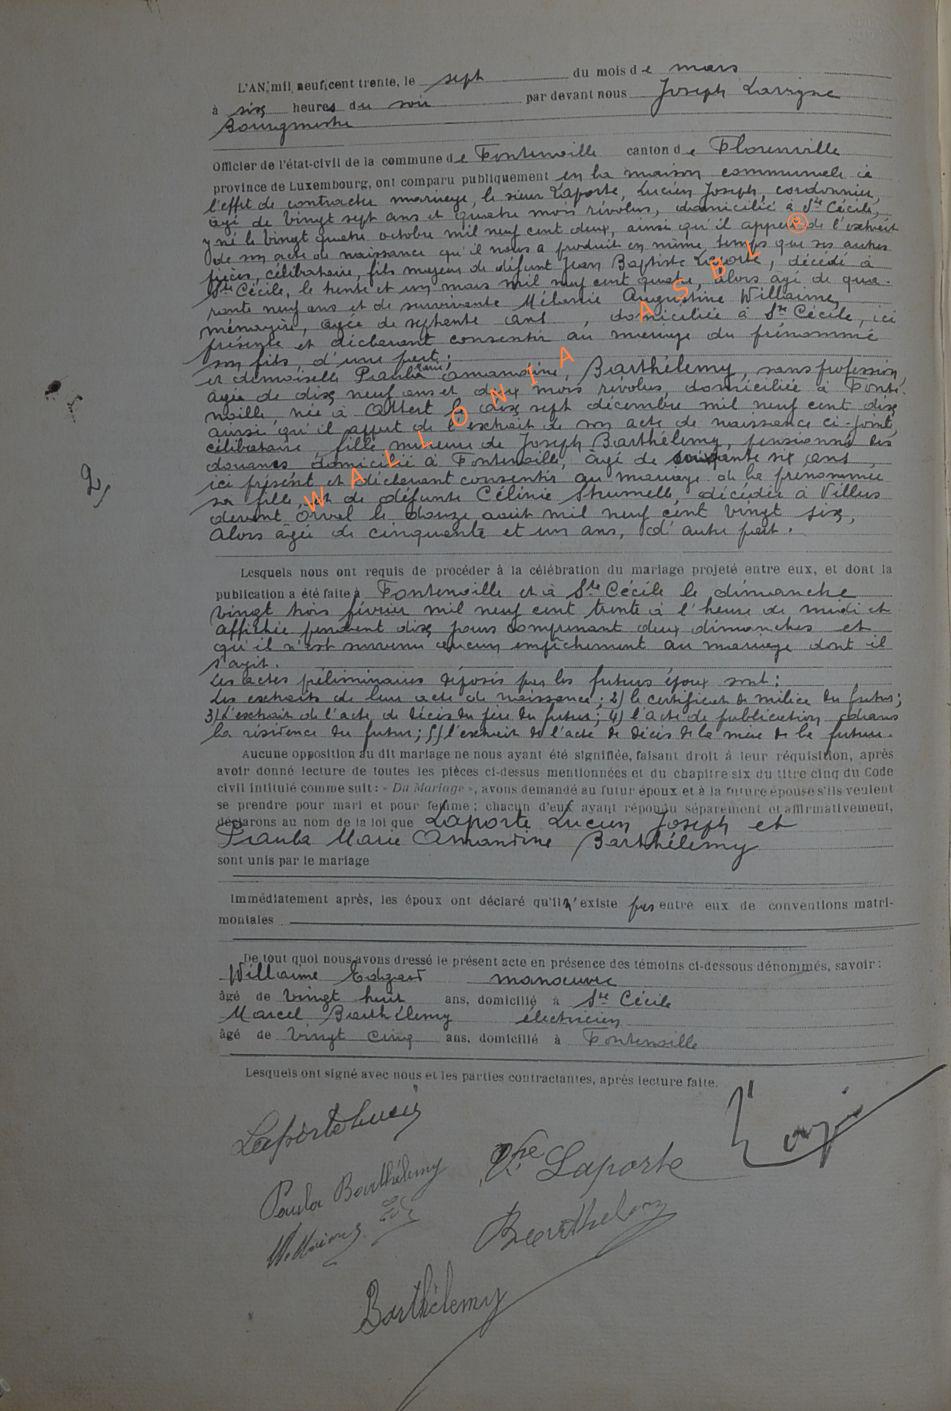 L'AN, mil neuf cent trente, le sept du mois de mars
à six heures du soir par devant nous Joseph
Bourgmestre
Officier de l'état-civil de la commune de Fontenoille canton de Florenville
province de Luxembourg, ont comparu publiquement en la maison communale à
l'effet de contracter mariage, le sieur Laporte, Lucien Joseph, cordonnier,
âgé de vingt sept ans et quatre mois révolus, domicilié à Ste Cécile,
y né le vingt quatre octobre mil neuf cent deux, ainsi qu'il appert de l'extrait
de son acte de naissance qu'il nous a produit en même temps que ses autres
pièces, célibataire, fils majeur de défunt Jean Baptiste Laporte, décédé à
Ste Cécile, le trente et un mars mil neuf cent quatre, alors âgé de qua-
rante neuf ans et de survivante Mélanie Augustine Willaume,
ménagère, âgée de septante ans, domiciliée à Ste Cécile, ici
présente et déclarant consentir au mariage du prénommé
son fils, d'une part;
et demoiselle Paula Marie Amandine, Barthélemy, sans profession,
âgée de dix neuf ans et deux mois révolus, domiciliée à Fonte-
noille née à Attert le dix sept décembre mil neuf cent dix
ainsi qu'il appert de l'extrait de son acte de naissance ci-joint,
célibataire, fille mineure de Joseph Barthélemy, pensionné des
douanes domicilié à Fontenoille, âgé de soixante six ans,
ici présent et déclarant consentir au mariage de la prénommée
sa fille, et de défunte Célinie, décédée à Villers
devant Orval le douze août mil neuf cent vingt six,
alors âgée de cinquante et un ans, d'autre part.
Lesquels nous ont requis de procéder à la célébration du mariage projeté entre eux, et dont la
publication a été faite à Fontenoille et à Ste Cécile le dimanche
vingt trois février mil neuf cent trente à l'heure de midi et
affichée pendant dix jours comprenant deux dimanches et
qu'il n'est survenu aucun empêchement au mariage dont il
s'agit.
Les actes préliminaires déposés par les futurs époux sont:
Les extraits de leur acte de naissance; 2) le certificat de milice du futur;
3) l'extrait de l'acte de décès du père du futur; 4) l'acte de publication dans
la résidence du futur; 5) l'extrait de l'acte de décès de la mère de la future.
Aucune opposition au dit mariage ne nous ayant été signifiée, faisant droit à leur réquisition, après
avoir donné lecture de toutes les pièces ci-dessus mentionnées et du chapitre six du titre cinq du Code
civil intitulé comme suit: « Du Mariage », avons demandé au futur époux et à la future épouse s'ils veulent
se prendre pour mari et pour femme; chacun d'eux ayant répondu séparément et affirmativement,
déclarons au nom de la loi que Laporte Lucien Joseph et
Paula Marie Amandine Barthélemy
sont unis par le mariage
Immédiatement après, les époux ont déclaré qu'il n'existe pas entre eux de conventions matri-
moniales
De tout quoi nous avons dressé le présent acte en présence des témoins ci-dessous dénommés, savoir:
Willaume Edgard manoeuvre
âgé de vingt huit ans, domicilié à Ste Cécile
Marcel Barthélemy électricien
âgé de vingt cinq ans, domicilié à Fontenoille
Lesquels ont signé avec nous et les parties contractantes, après lecture faite.
2
Laporte Lucien
Vve Laporte
Paula Barthélemy
Barthélemy
Barthélemy
WALLONIA ASBL ®